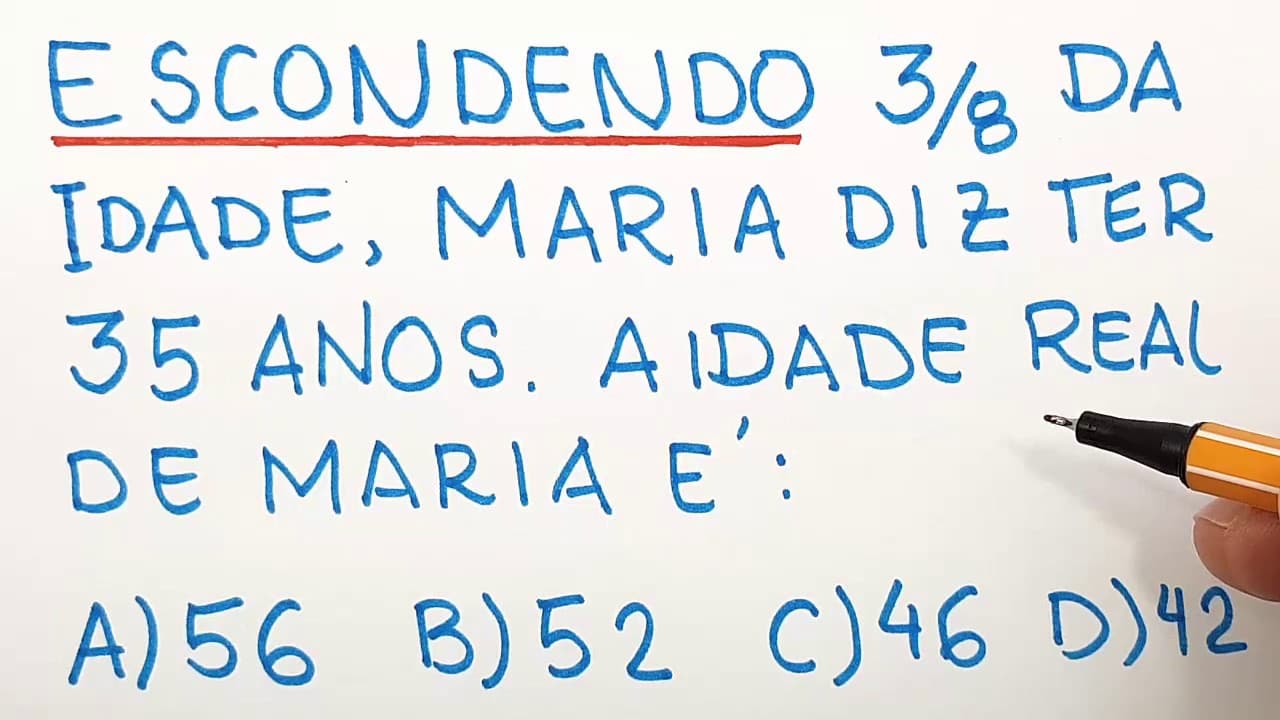 ESCONDENDO 3/8 DA
IDADE, MARIA DIZ TER
35 ANOS. A IDADE REAL
DE MARIA É:
A) 56 B) 52 C) 46 D) 42